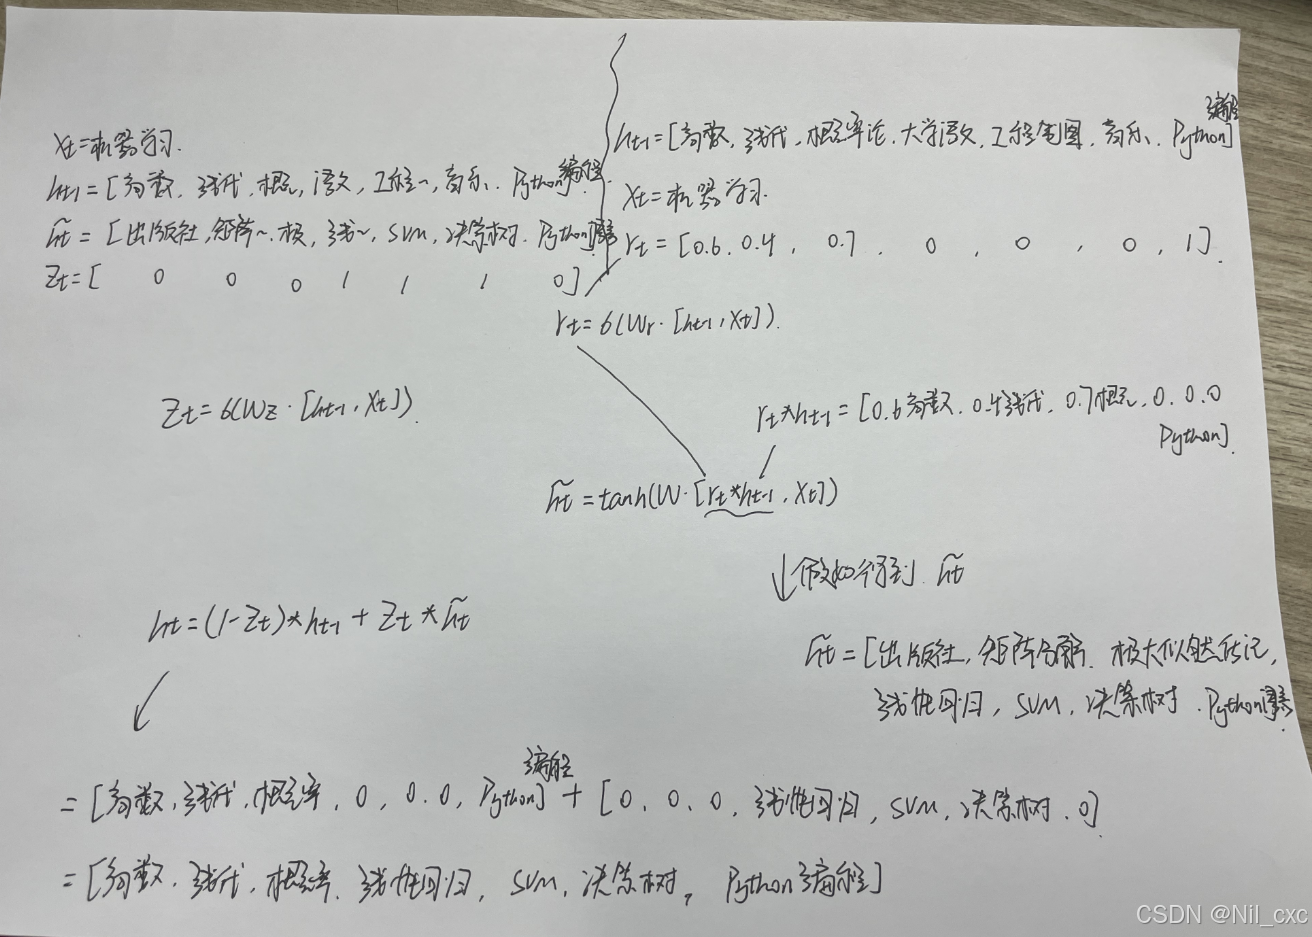 xt=机器学习.
ht-1=[高数, 线代, 概论, 语文, 工程~, 音乐, Python编程].
h̃t=[出版社, 矩阵~, 极, 线~, SVM, 决策树, Python]
Zt=[ 0 0 0 1 1 1 0]
Zt=6(Wz·[ht-1, Xt]).
ht=(1-Zt)*ht-1+Zt*h̃t
ht-1=[高数, 线代, 概率论, 大学语文, 工程制图, 音乐, Python编程]
Xt=机器学习.
rt=[0.6, 0.4, 0.7, 0, 0, 0, 1].
rt=6(Wr·[ht-1, Xt]).
rt*ht-1=[0.6高数, 0.4线代, 0.7概论, 0.0.0
Python].
h̃t=tanh(W·[rt*ht-1, Xt])
↓假如得到 h̃t
h̃t=[出版社, 矩阵分解, 极大似然估计,
线性回归, SVM, 决策树, Python
=[高数, 线代, 概率, 0, 0.0, Python编程]+[0, 0, 0, 线性回归, SVM, 决策树, 0]
=[高数, 线代, 概率, 线性回归, SVM, 决策树, Python编程]
CSDN @Nil_cxc